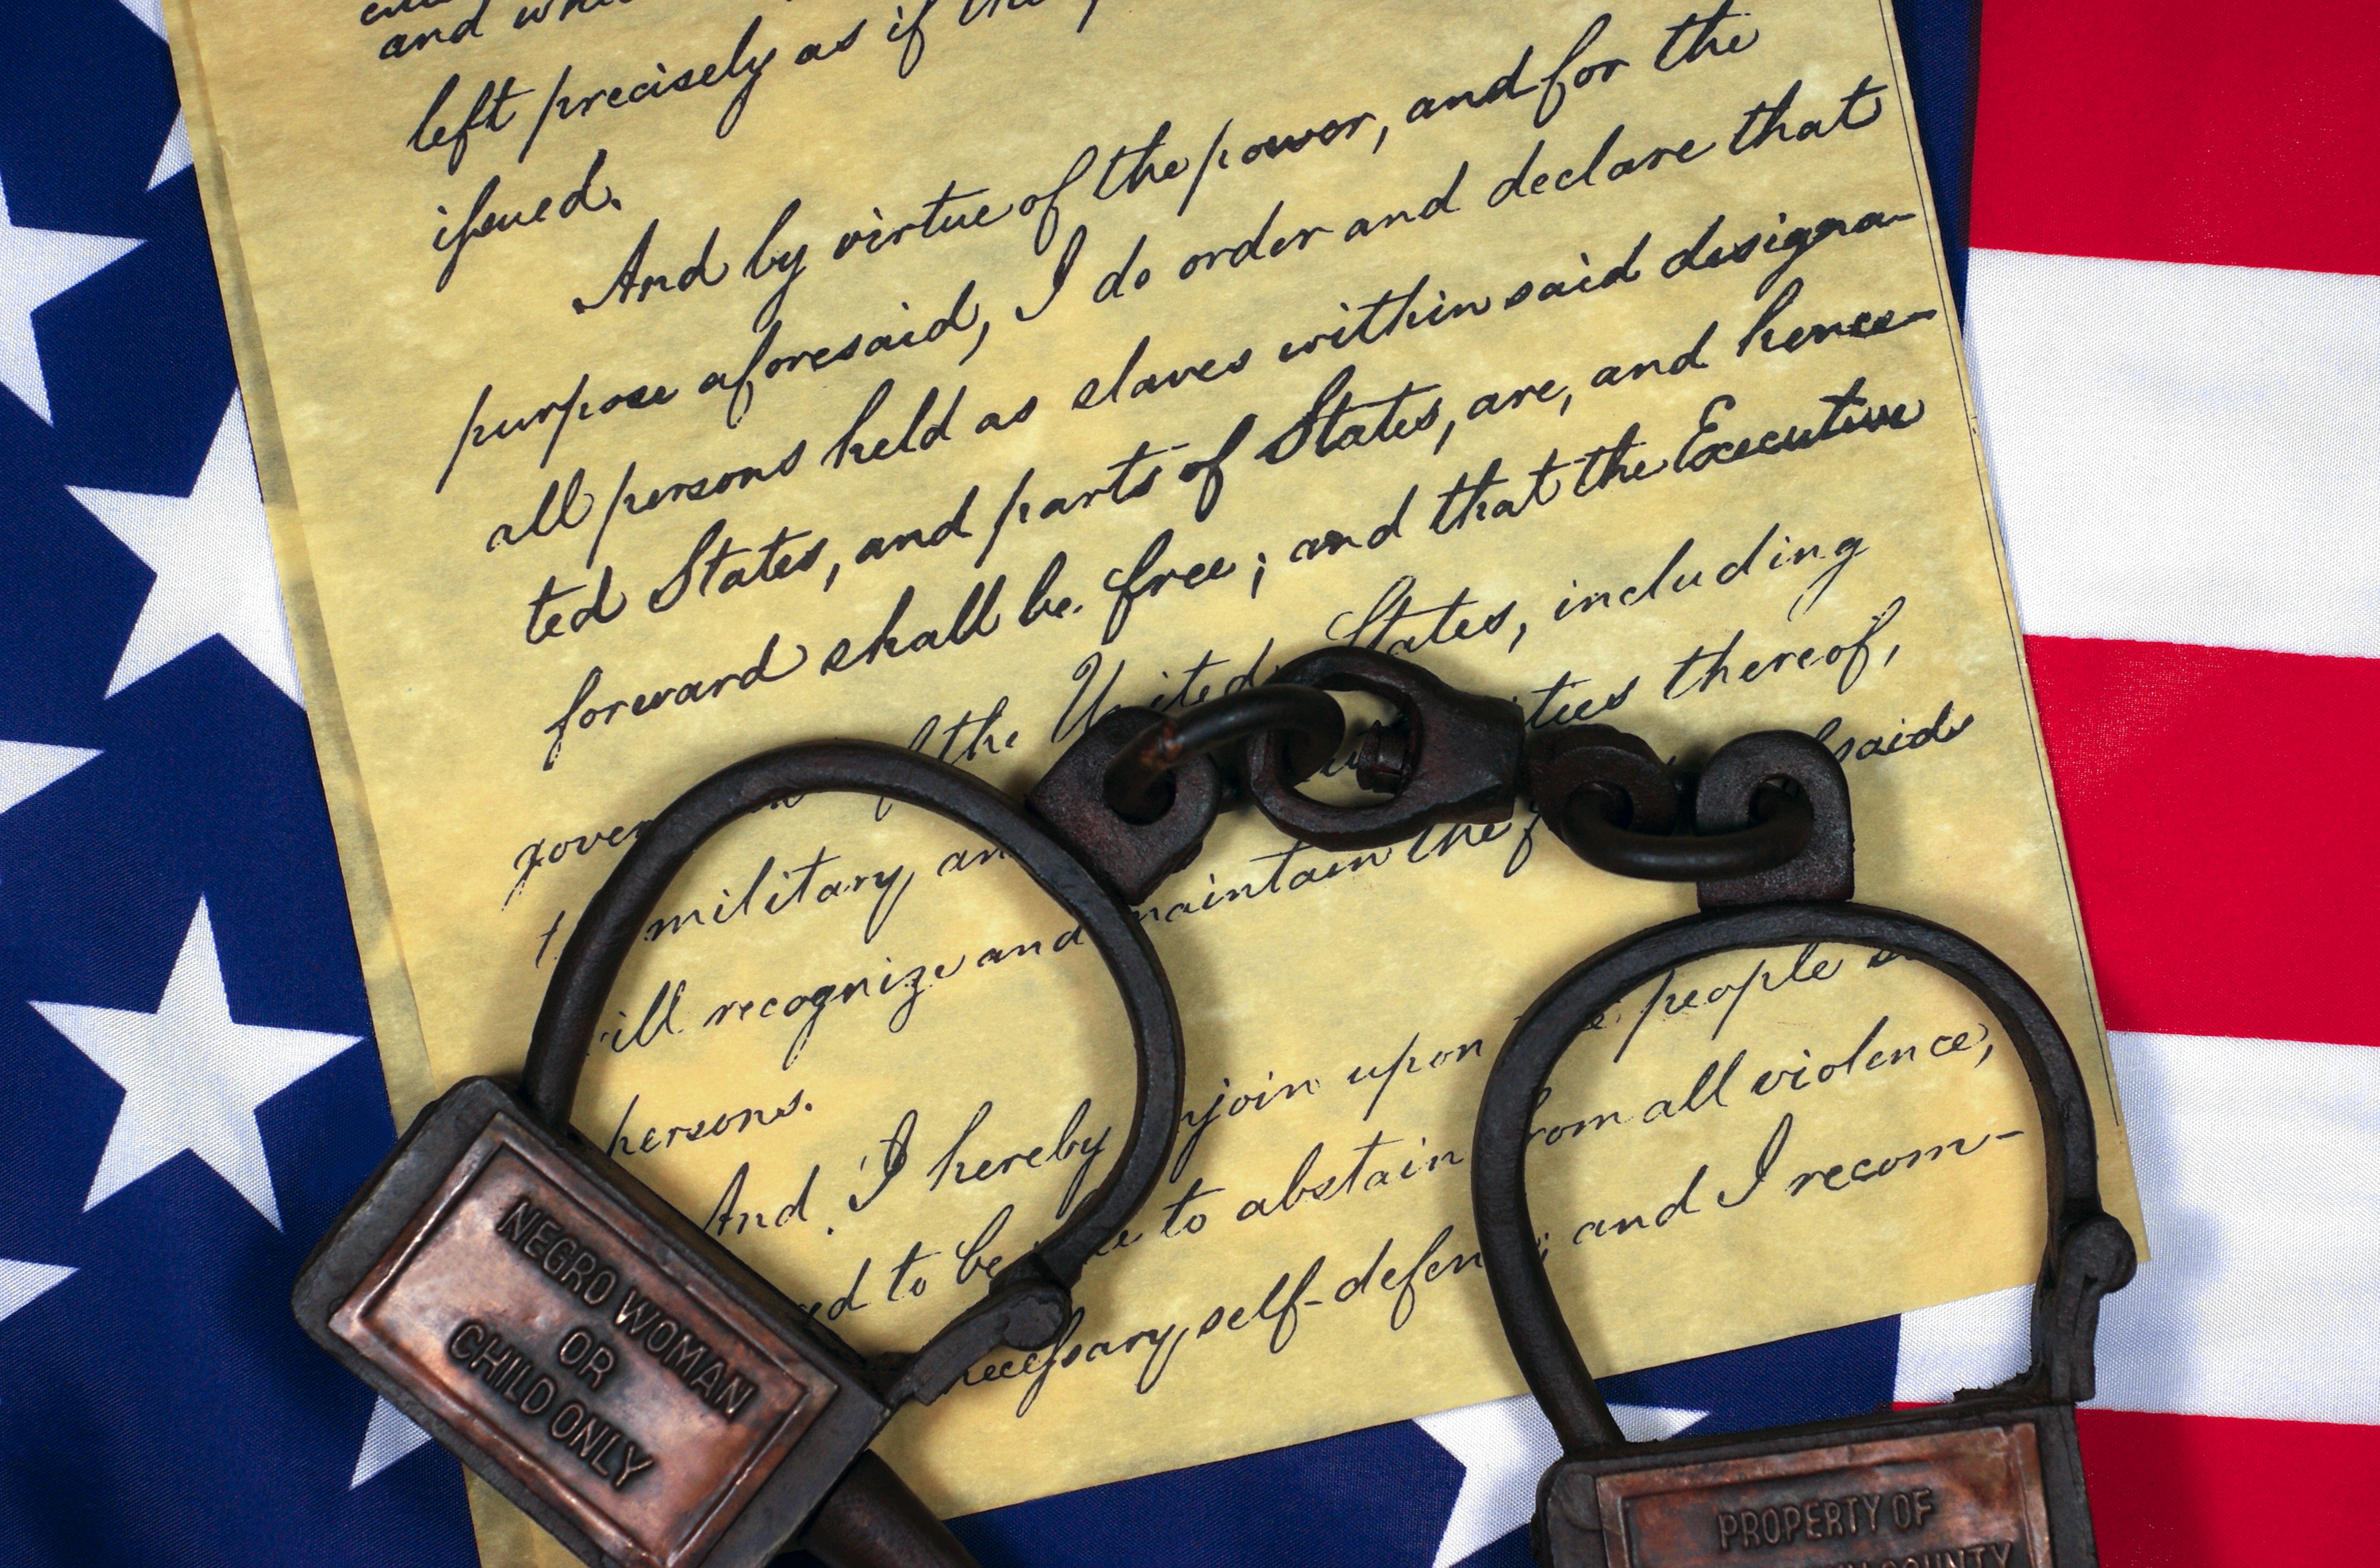 and
left precisely as if
issued.
And by virtue of the power, and for the
purpose aforesaid, I do order and declare that
all persons held as slaves within said designa-
ted States, and parts of States, are, and hence-
forward shall be free; and that the Executive
the United States, including
military, thereof,
recognize and maintain the said
persons.
And I hereby upon people
to be to abstain from all violence,
necessary self-defence; and I recom-
NEGRO WOMAN
OR
CHILD ONLY
PROPERTY OF
COUNTY